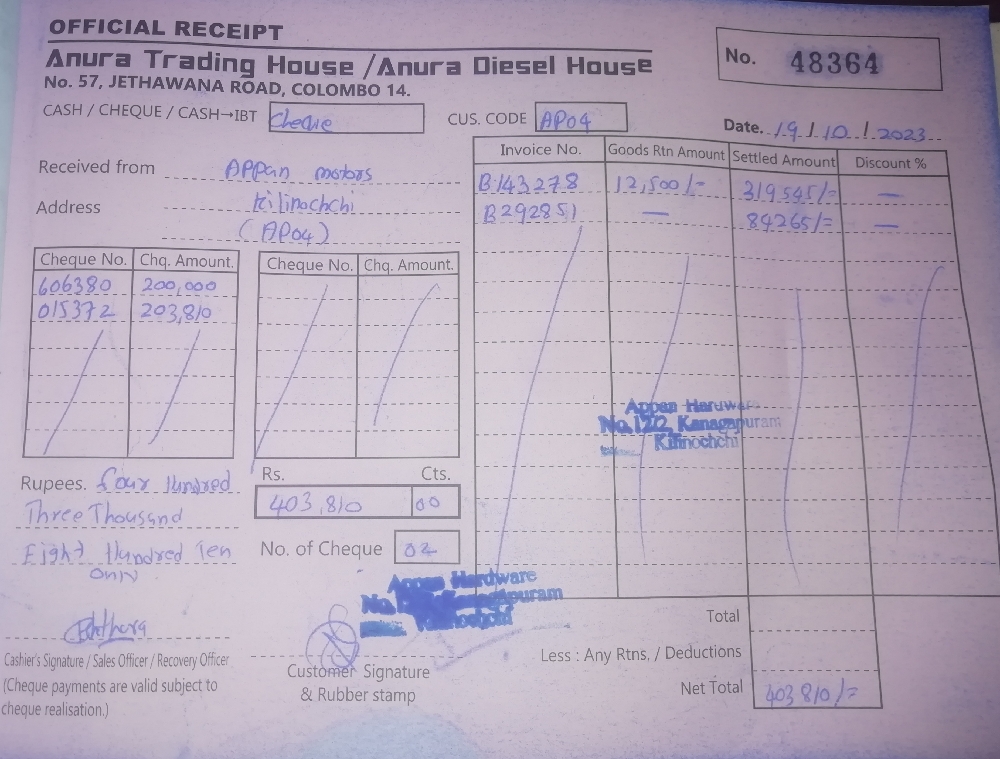 OFFICIAL RECEIPT
Anura Trading House /Anura Diesel House
No. 57, JETHAWANA ROAD, COLOMBO 14.
No. 48364
CASH / CHEQUE / CASH→IBT Cheque
CUS. CODE AP04
Date. 19 / 10 / 2023
Received from APPan motors
Address Kilinochchi
(AP04)
Invoice No. Goods Rtn Amount Settled Amount Discount %
B143278 12,500/= 319545/= —
B292851 — 84265/= —
Cheque No. Chq. Amount. Cheque No. Chq. Amount.
606380 200,000
015372 203,810
Appan Haruware
No.122, Kanagapuram
Kilinochchi
Rupees. Four Hundred
Three Thousand
Eight Hundred Ten
only
Rs. Cts.
403,810 00
No. of Cheque 02
Appan Hardware
No. Kanagapuram
Kilinochchi
Cashier's Signature / Sales Officer / Recovery Officer
(Cheque payments are valid subject to
cheque realisation.)
Customer Signature
& Rubber stamp
Total
Less : Any Rtns. / Deductions
Net Total 403810/=